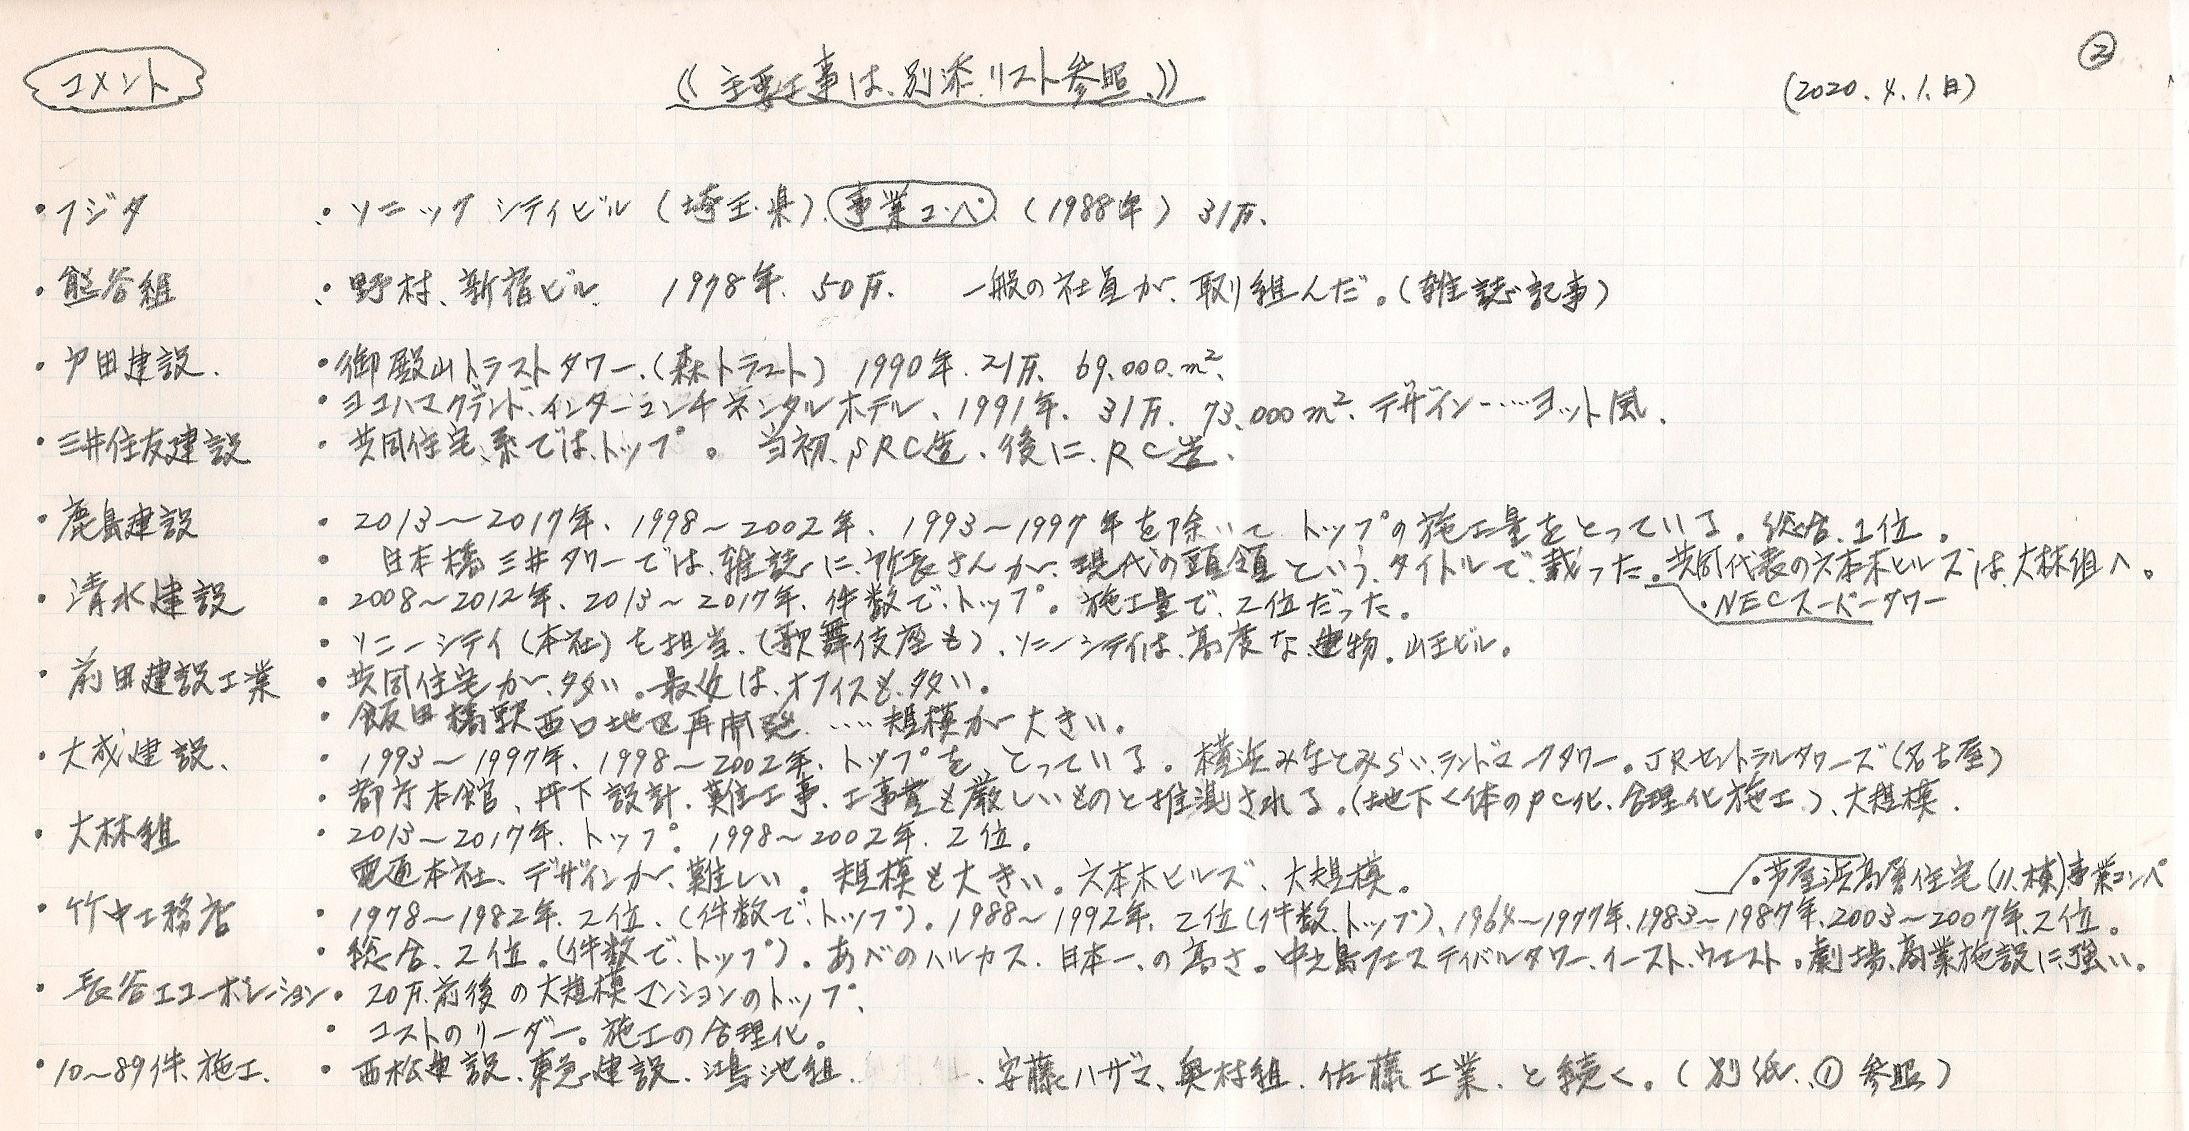 ②
コメント
《主要工事は、別添リスト参照。》
(2020.4.1.日)
・フジタ ・ソニックシティビル(埼玉県)、事業コンペ (1988年) 31万、
・熊谷組 ・野村、新宿ビル、 1978年、50万、 一般の社員が、取り組んだ。(雑誌記事)
・戸田建設、 ・御殿山トラストタワー、(森トラスト) 1990年、21万、69,000m²、
・ヨコハマグランド、インターコンチネンタルホテル、1991年、31万、73,000m²、デザイン……ヨット風、
・三井住友建設 ・共同住宅、系では、トップ。 当初、SRC造、後に、RC造、
・鹿島建設 ・2013〜2017年、1998〜2002年、1993〜1997年を除いて トップの施工量をとっている。総合、1位。
・日本橋三井タワーでは、雑誌に、所長さんが、現代の頭領という、タイトルで、載った。共同代表の六本木ヒルズは、大林組へ。
・清水建設 ・2008〜2012年、2013〜2017年、件数で、トップ。施工量で、2位だった。
・NECスーパータワー
・ソニーシティ(本社)も担当、(歌舞伎座も)、ソニーシティは、高度な、建物。山王ビル。
・前田建設工業 ・共同住宅が、多い。最近は、オフィスも、多い。
・飯田橋駅西口地区再開発……規模が大きい。
・大成建設、 ・1993〜1997年、1998〜2002年、トップを、とっている。横浜みなとみらい、ランドマークタワー。JRセントラルタワーズ(名古屋)
・都庁本館、丹下設計、難工事、工事費も厳しいものと推測される。(地下く体のPC化、合理化施工)、大規模、
・大林組 ・2013〜2017年、トップ。1998〜2002年、2位。
電通本社、デザインが、難しい。規模も大きい。六本木ヒルズ、大規模。
・芦屋浜高層住宅(11、棟)事業コンペ
・竹中工務店 ・1978〜1982年、2位、(件数で、トップ)。1988〜1992年、2位(件数、トップ)、1964〜1977年、1983〜1987年、2003〜2007年、2位。
・総合、2位。(件数で、トップ)。あべのハルカス、日本一、の高さ。中之島フェスティバルタワー、イースト、ウエスト。劇場、商業施設に、強い。
・長谷工コーポレーション ・20万、前後の大規模マンションのトップ、
・コストのリーダー。施工の合理化。
・10〜89件、施工、 ・西松建設、東急建設、鴻池組、 、安藤ハザマ、奥村組、佐藤工業、と続く。(別紙、① 参照)